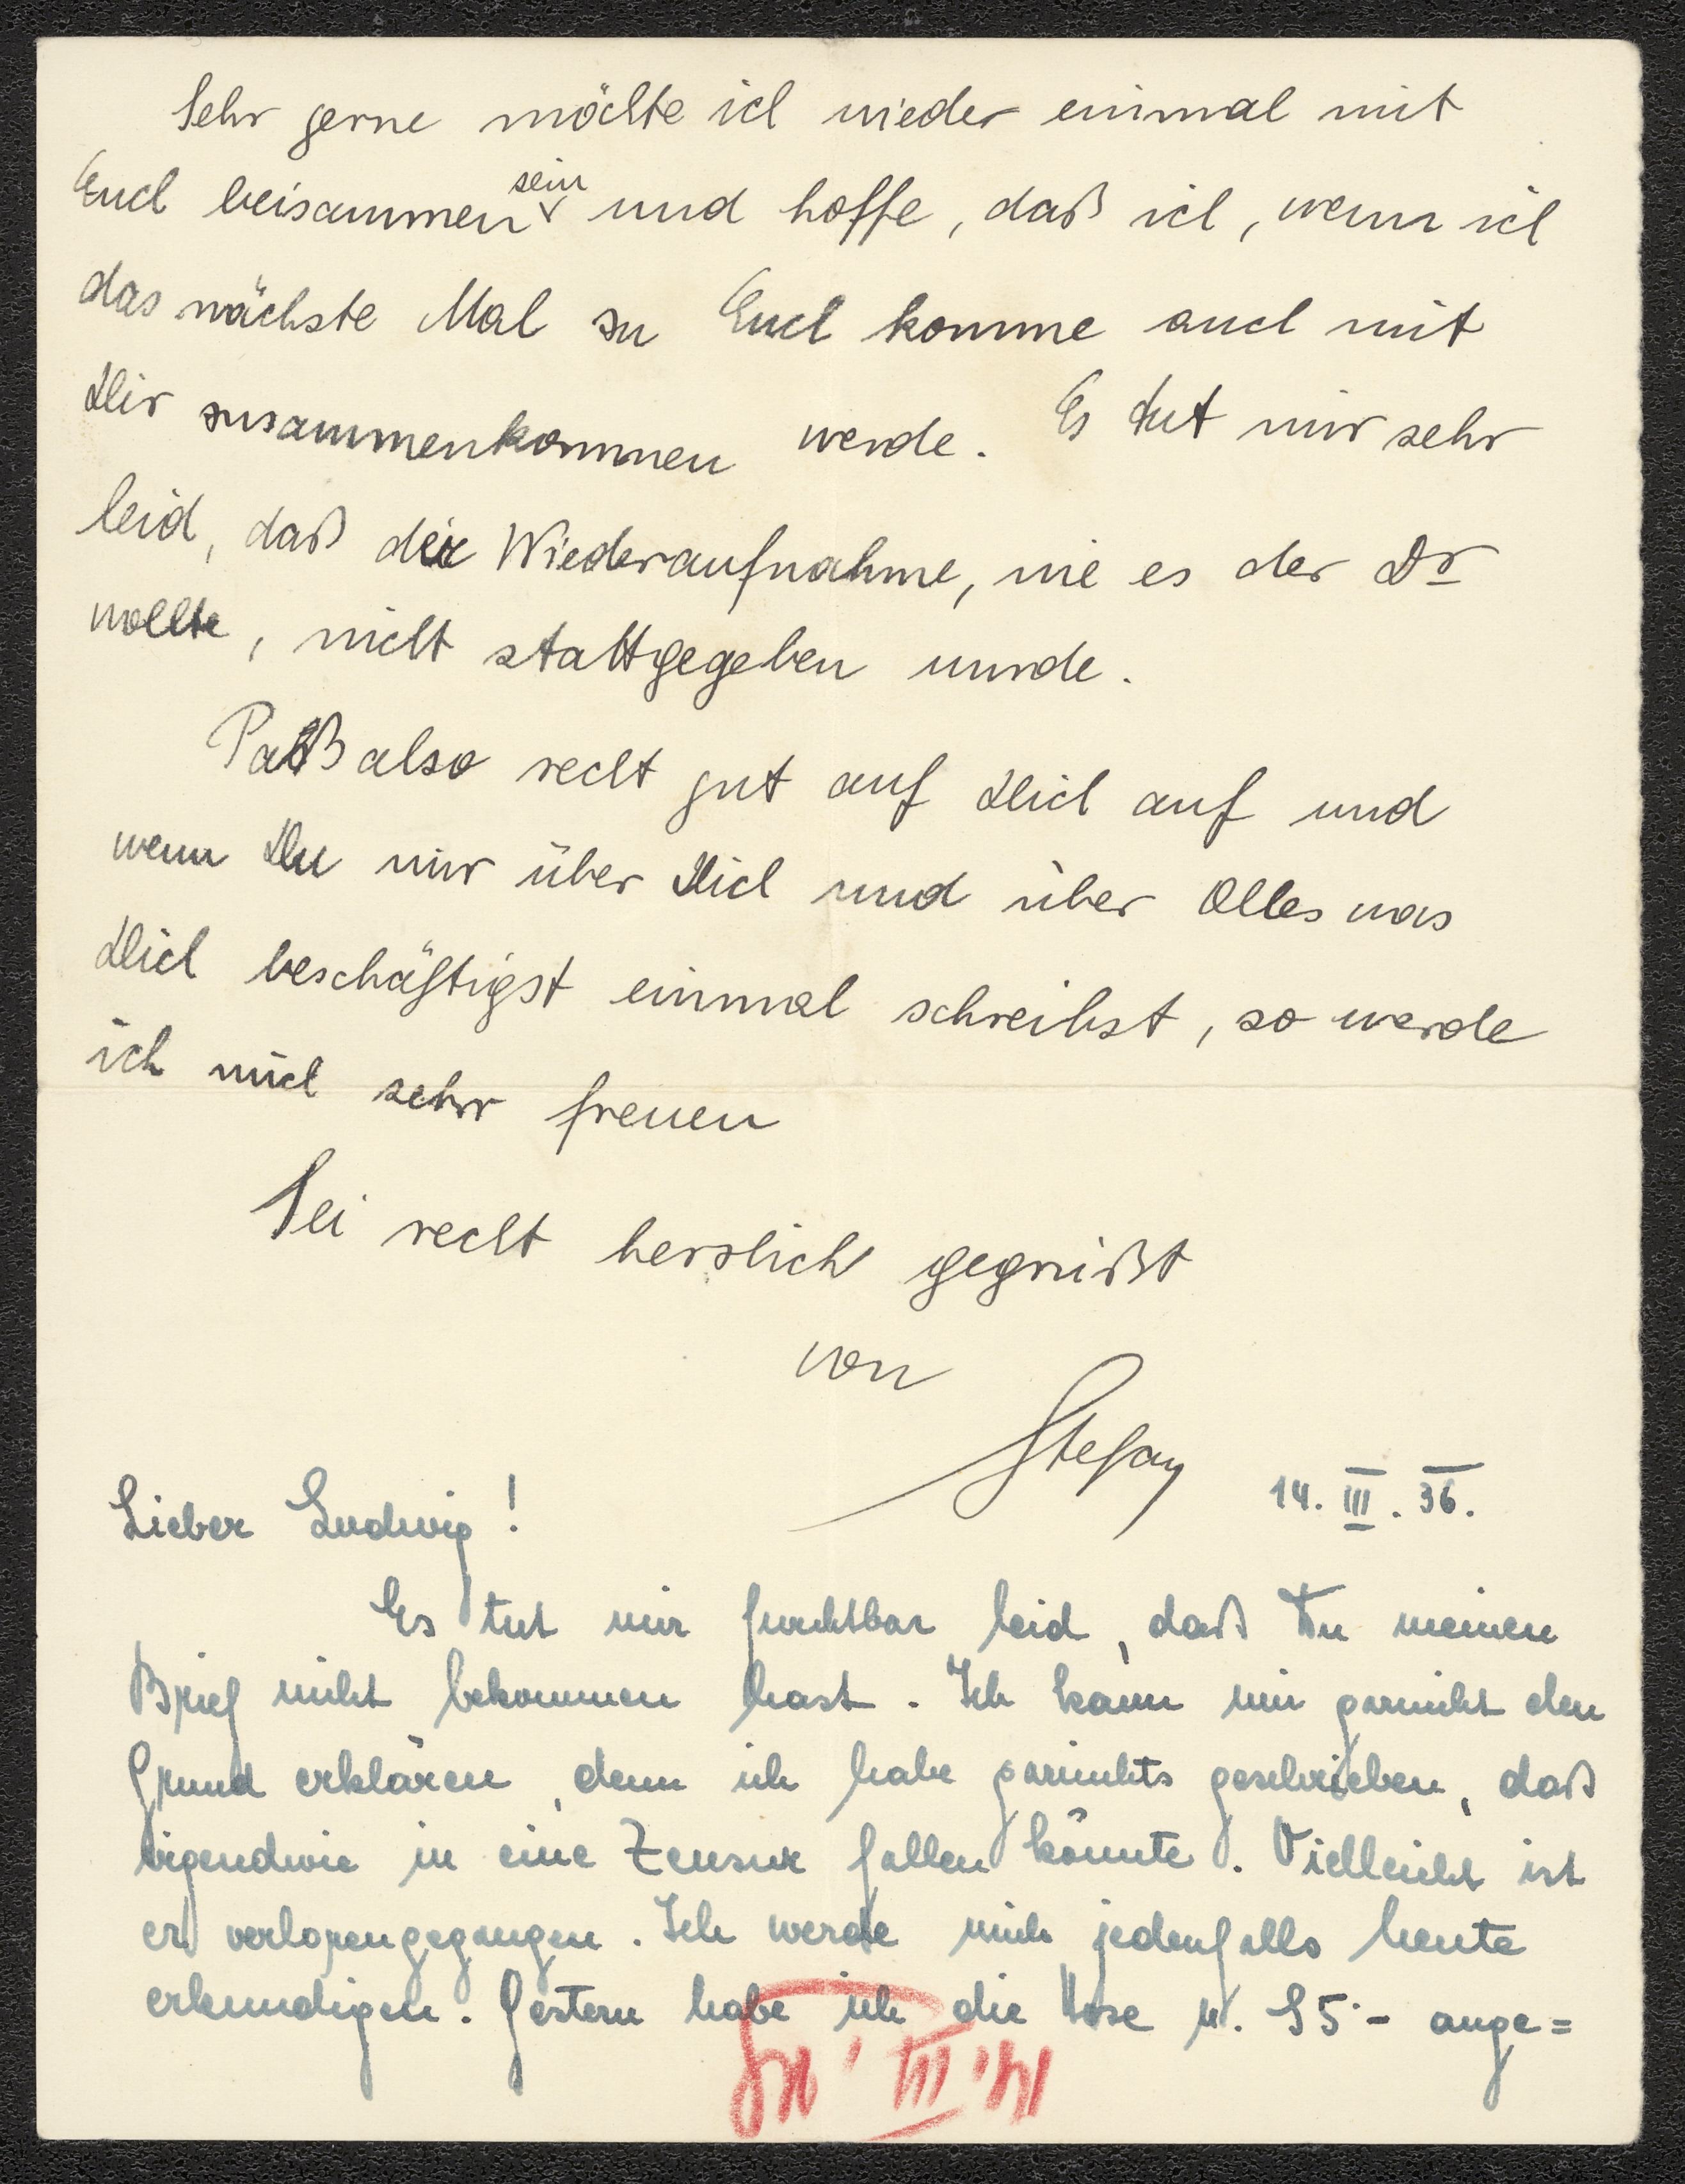 Sehr gerne möchte ich wieder einmal mit
Euch beisammen sein und hoffe, daß ich, wenn ich
das nächste Mal zu Euch komme auch mit
Dir zusammenkommen werde. Es tut mir sehr
leid, daß der Wiederaufnahme, wie es der Dr
wollte, nicht stattgegeben wurde.
Paß also recht gut auf Dich auf und
wenn Du mir über Dich und über Alles was
Dich beschäftigst einmal schreibst, so werde
ich mich sehr freuen
Sei recht herzlich gegrüßt
von
Stefan
14. III. 36.
Lieber Ludwig!
Es tut mir furchtbar leid, daß Du meinen
Brief nicht bekommen hast. Ich kann mir garnicht den
Grund erklären, denn ich habe garnichts geschrieben, daß
irgendwie in eine Zensur fallen könnte. Vielleicht ist
er verlorengegangen. Ich werde mich jedenfalls heute
erkundigen. Gestern habe ich die Hose u. S 5·- ange=
14. III.